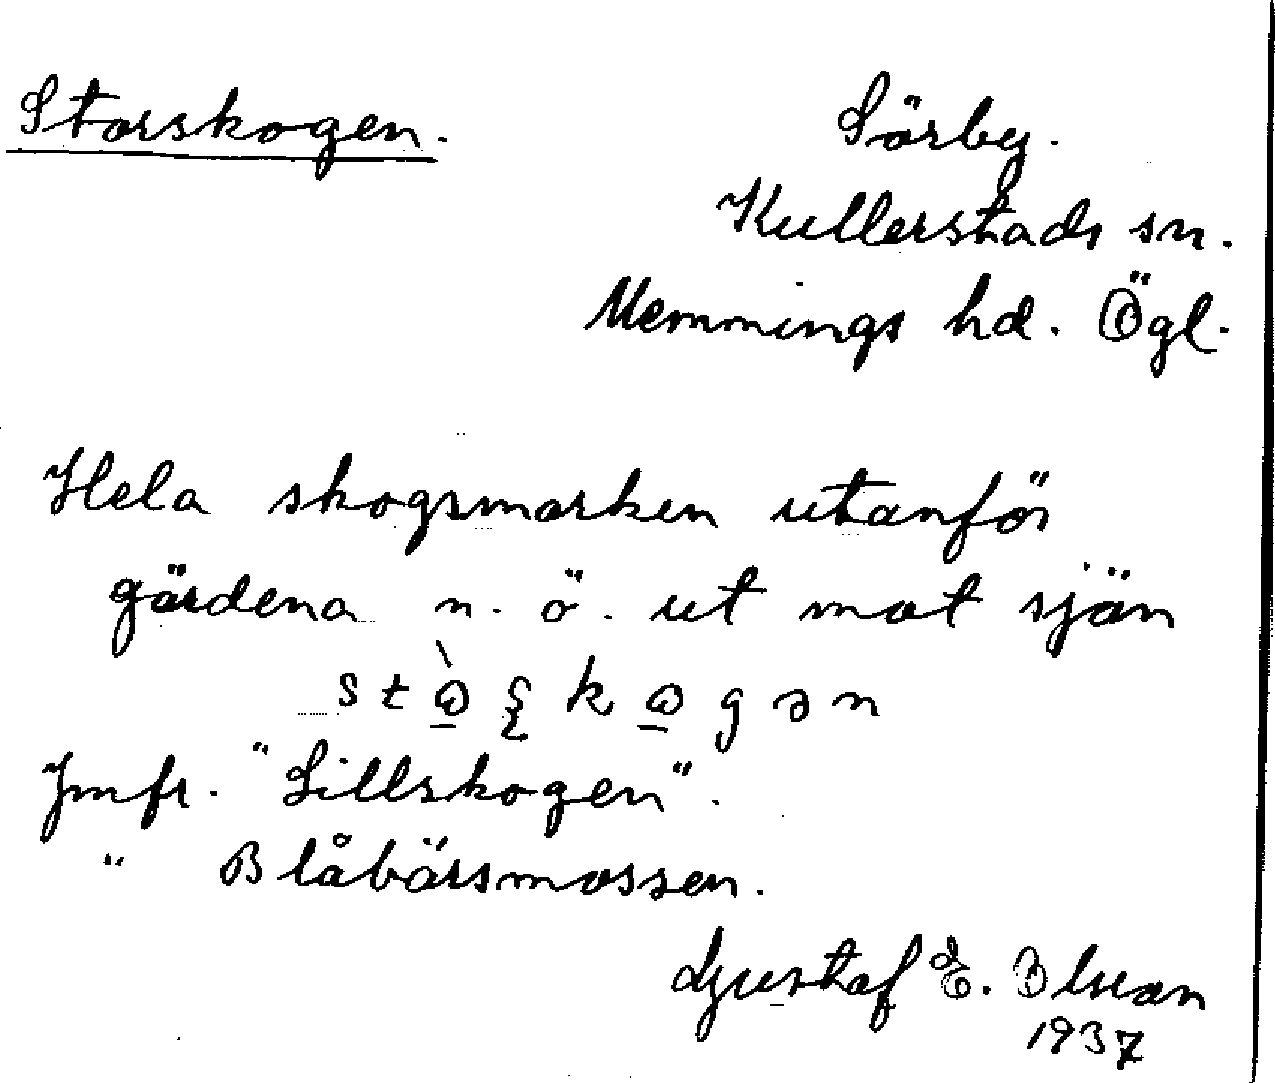 Storskogen.
Sörby.
Kullerstads sn.
Memmings hd. Ögl.
Hela skogsmarken utanför
gärdena n. ö. ut mot sjön
Jmfr. "Lillskogen".
" Blåbärsmossen.
Gustaf E. Olson
1937